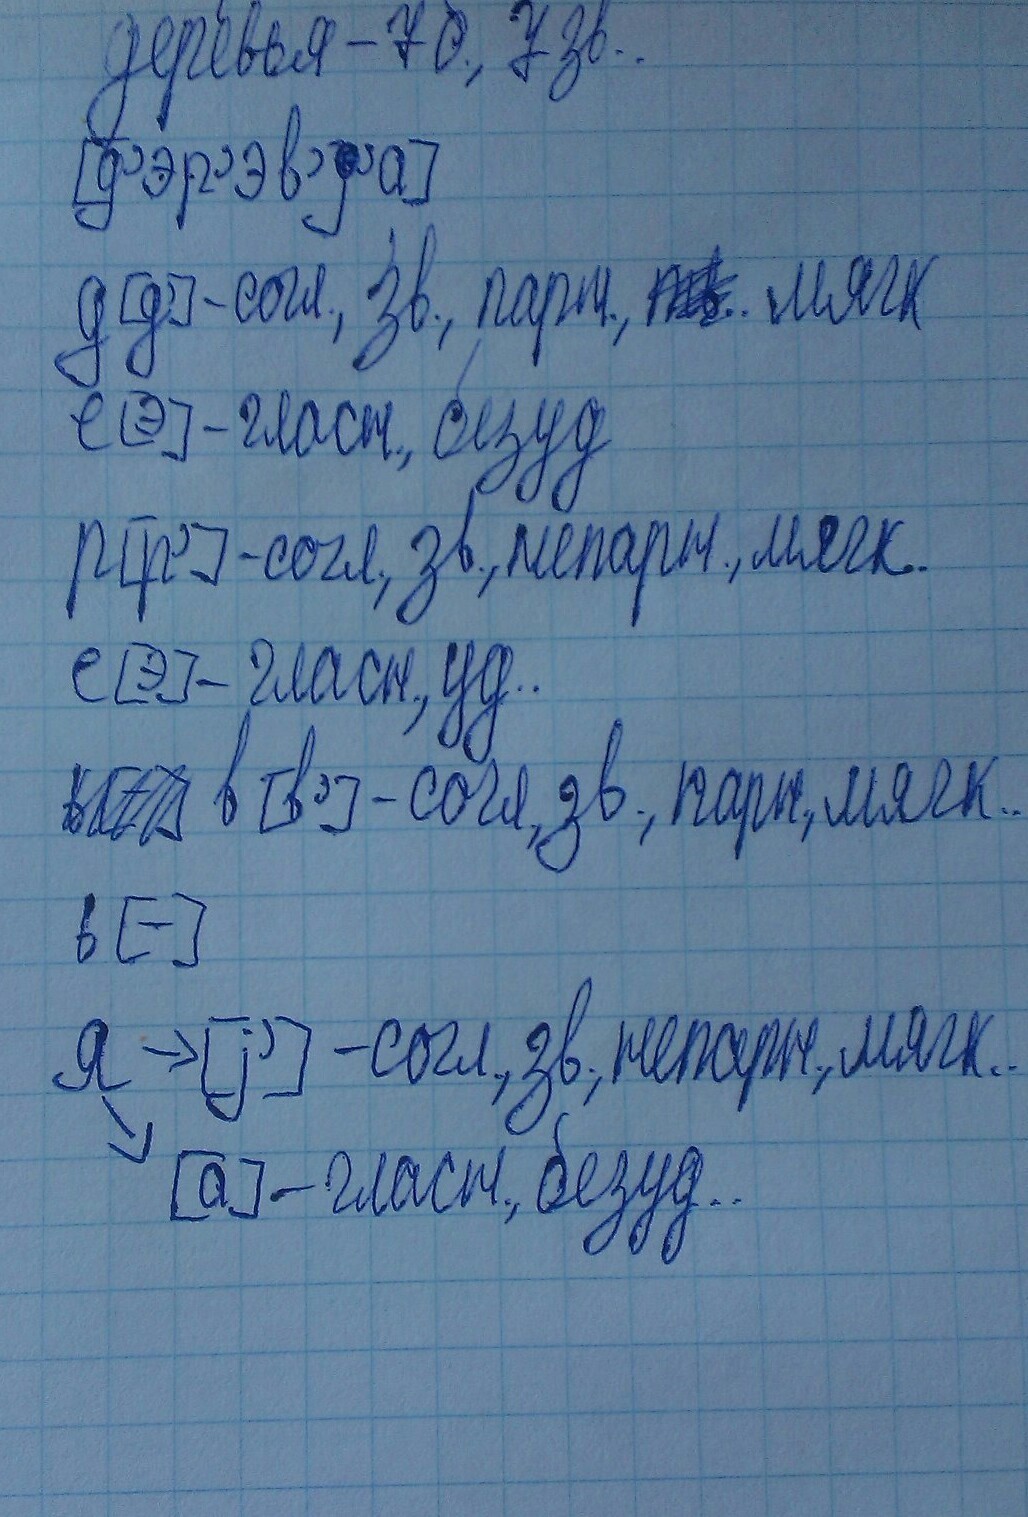 деревья – 7 б., 7 зв..
[д'эр'эв'j'а]
д [д'] – согл., зв., парн., мягк
е [э] – гласн., безуд
р [р'] – согл., зв., непарн., мягк.
е [э] – гласн., уд..
в [в'] – согл, зв., парн, мягк..
ь [–]
я → [j'] – согл., зв., непарн., мягк..
↘ [а] – гласн., безуд..